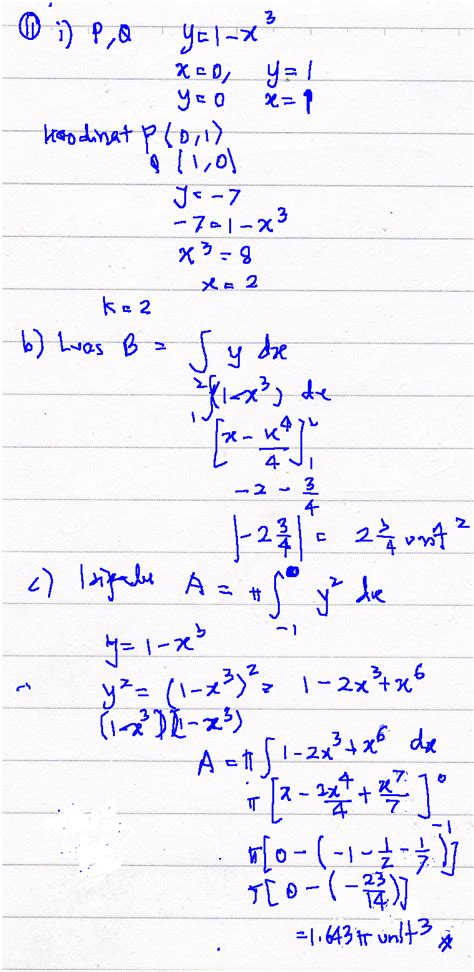 ⑪ i) P, Q y = 1 - x³
x = 0, y = 1
y = 0 x = 1
koodinat P (0, 1)
Q (1, 0)
y = -7
-7 = 1 - x³
x³ = 8
x = 2
k = 2
b) Luas B = ∫ y dx
₁²∫(1 - x³) dx
[x - x⁴/4]₁²
-2 - 3/4
|-2 3/4| = 2 3/4 unit²
c) Isipadu A = π ∫₋₁⁰ y² dx
y = 1 - x³
y² = (1 - x³)² = 1 - 2x³ + x⁶
(1 - x³)(1 - x³)
A = π ∫ 1 - 2x³ + x⁶ dx
π [x - 2x⁴/4 + x⁷/7]₋₁⁰
π [0 - (-1 - 1/2 - 1/7)]
π [0 - (-23/14)]
= 1.643 π unit³